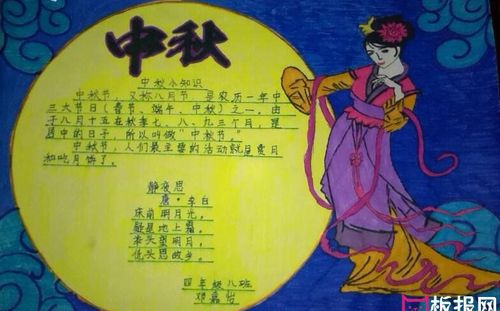 中秋
中秋小知识
中秋节，又称八月节，是农历一年中
三大节日（春节、端午、中秋）之一。由
于八月十五在秋季七、八、九三个月，是
居中的日子，所以叫做“中秋节”。
中秋节，人们最主要的活动就是赏月
和吃月饼了。
静夜思
唐·李白
床前明月光，
疑是地上霜。
举头望明月，
低头思故乡。
四年级八班
邓嘉怡
板报网